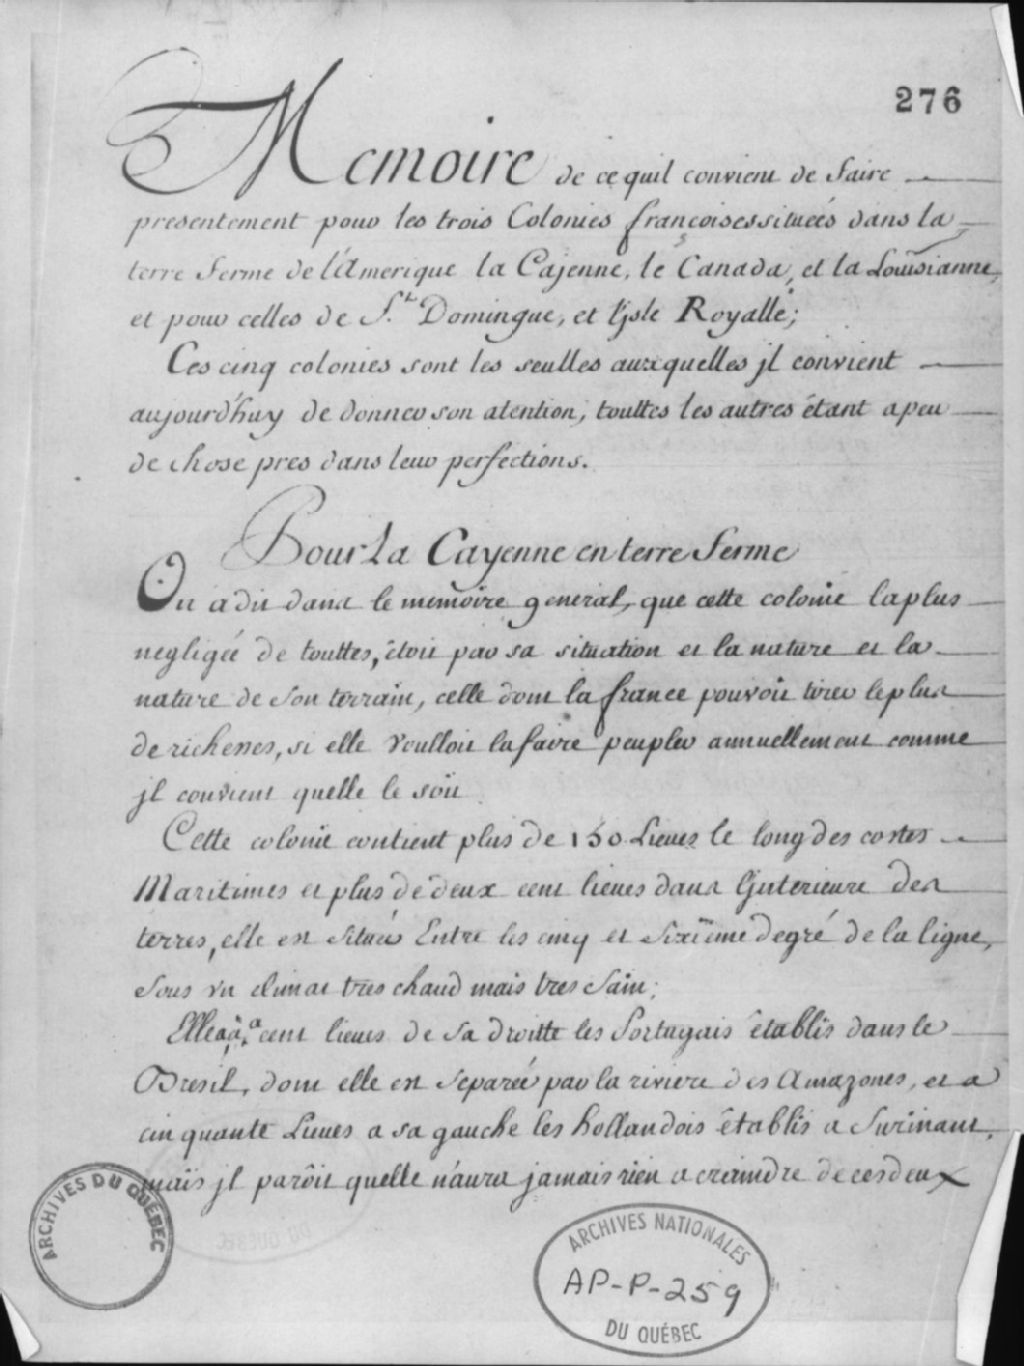 276
Memoire de ce quil convient de faire
presentement pour les trois Colonies françoises situées dans la
terre ferme de l'Amerique la Cajenne, le Canada, et la Louisianne,
et pour celles de S.t Domingue, et l'jsle Royalle;
Ces cinq colonies sont les seulles auxquelles jl convient
aujourd'huy de donner son atention, touttes les autres étant a peu
de chose pres dans leur perfections.
Pour La Cayenne en terre ferme
On a dit dans le memoire general, que cette colonie la plus
negligée de touttes, étoit par sa situation et la nature et la
nature de son terrain, celle dont la france pouvoit tirer le plus
de richesses, si elle voulloit la faire peupler annuellement comme
jl convient quelle le soit
Cette colonie contient plus de 150 Lieues le long des costes
Maritimes et plus de deux cent lieues dans l'jnterieure des
terres, elle est située Entre les cinq et sixiême degré de la ligne,
sous un climat tres chaud mais tres sain;
Elle a à cent lieues de sa droitte les Portugais établis dans le
Bresil, dont elle est separée par la riviere des Amazones, et a
cinquante Lieues a sa gauche les hollandois établis a Surinam,
mais jl paroit quelle n'aura jamais rien a craindre de ces deux
ARCHIVES DU QUÉBEC
ARCHIVES NATIONALES
AP-P-259
DU QUÉBEC